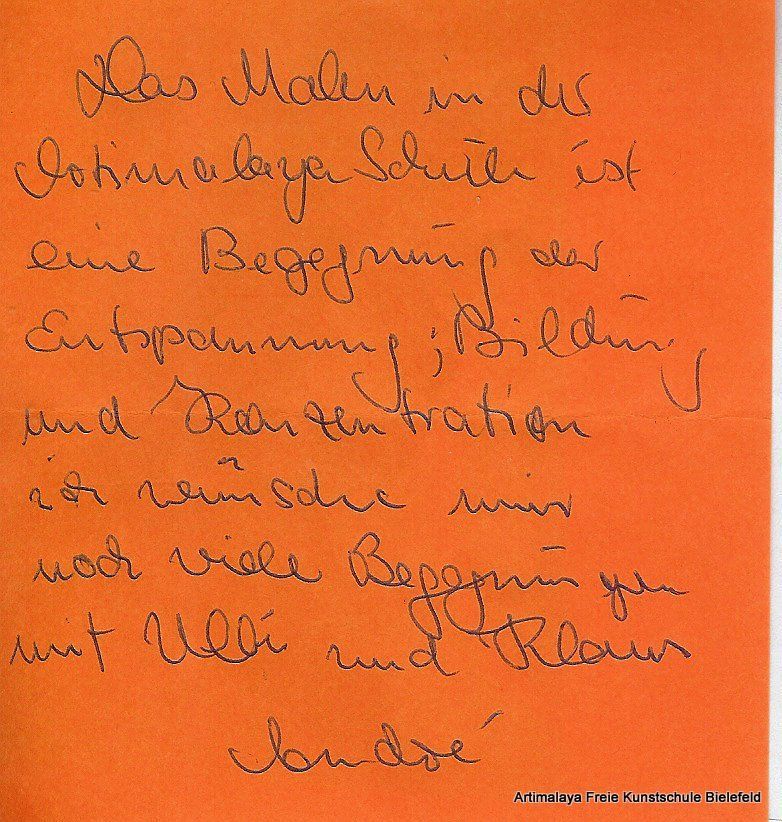 Das Malen in der
Artimalaya Schule ist
eine Begegnung der
Entspannung, Bildung
und Konzentration
ich wünsche mir
noch viele Begegnungen
mit Ulli und Klaus
André
Artimalaya Freie Kunstschule Bielefeld